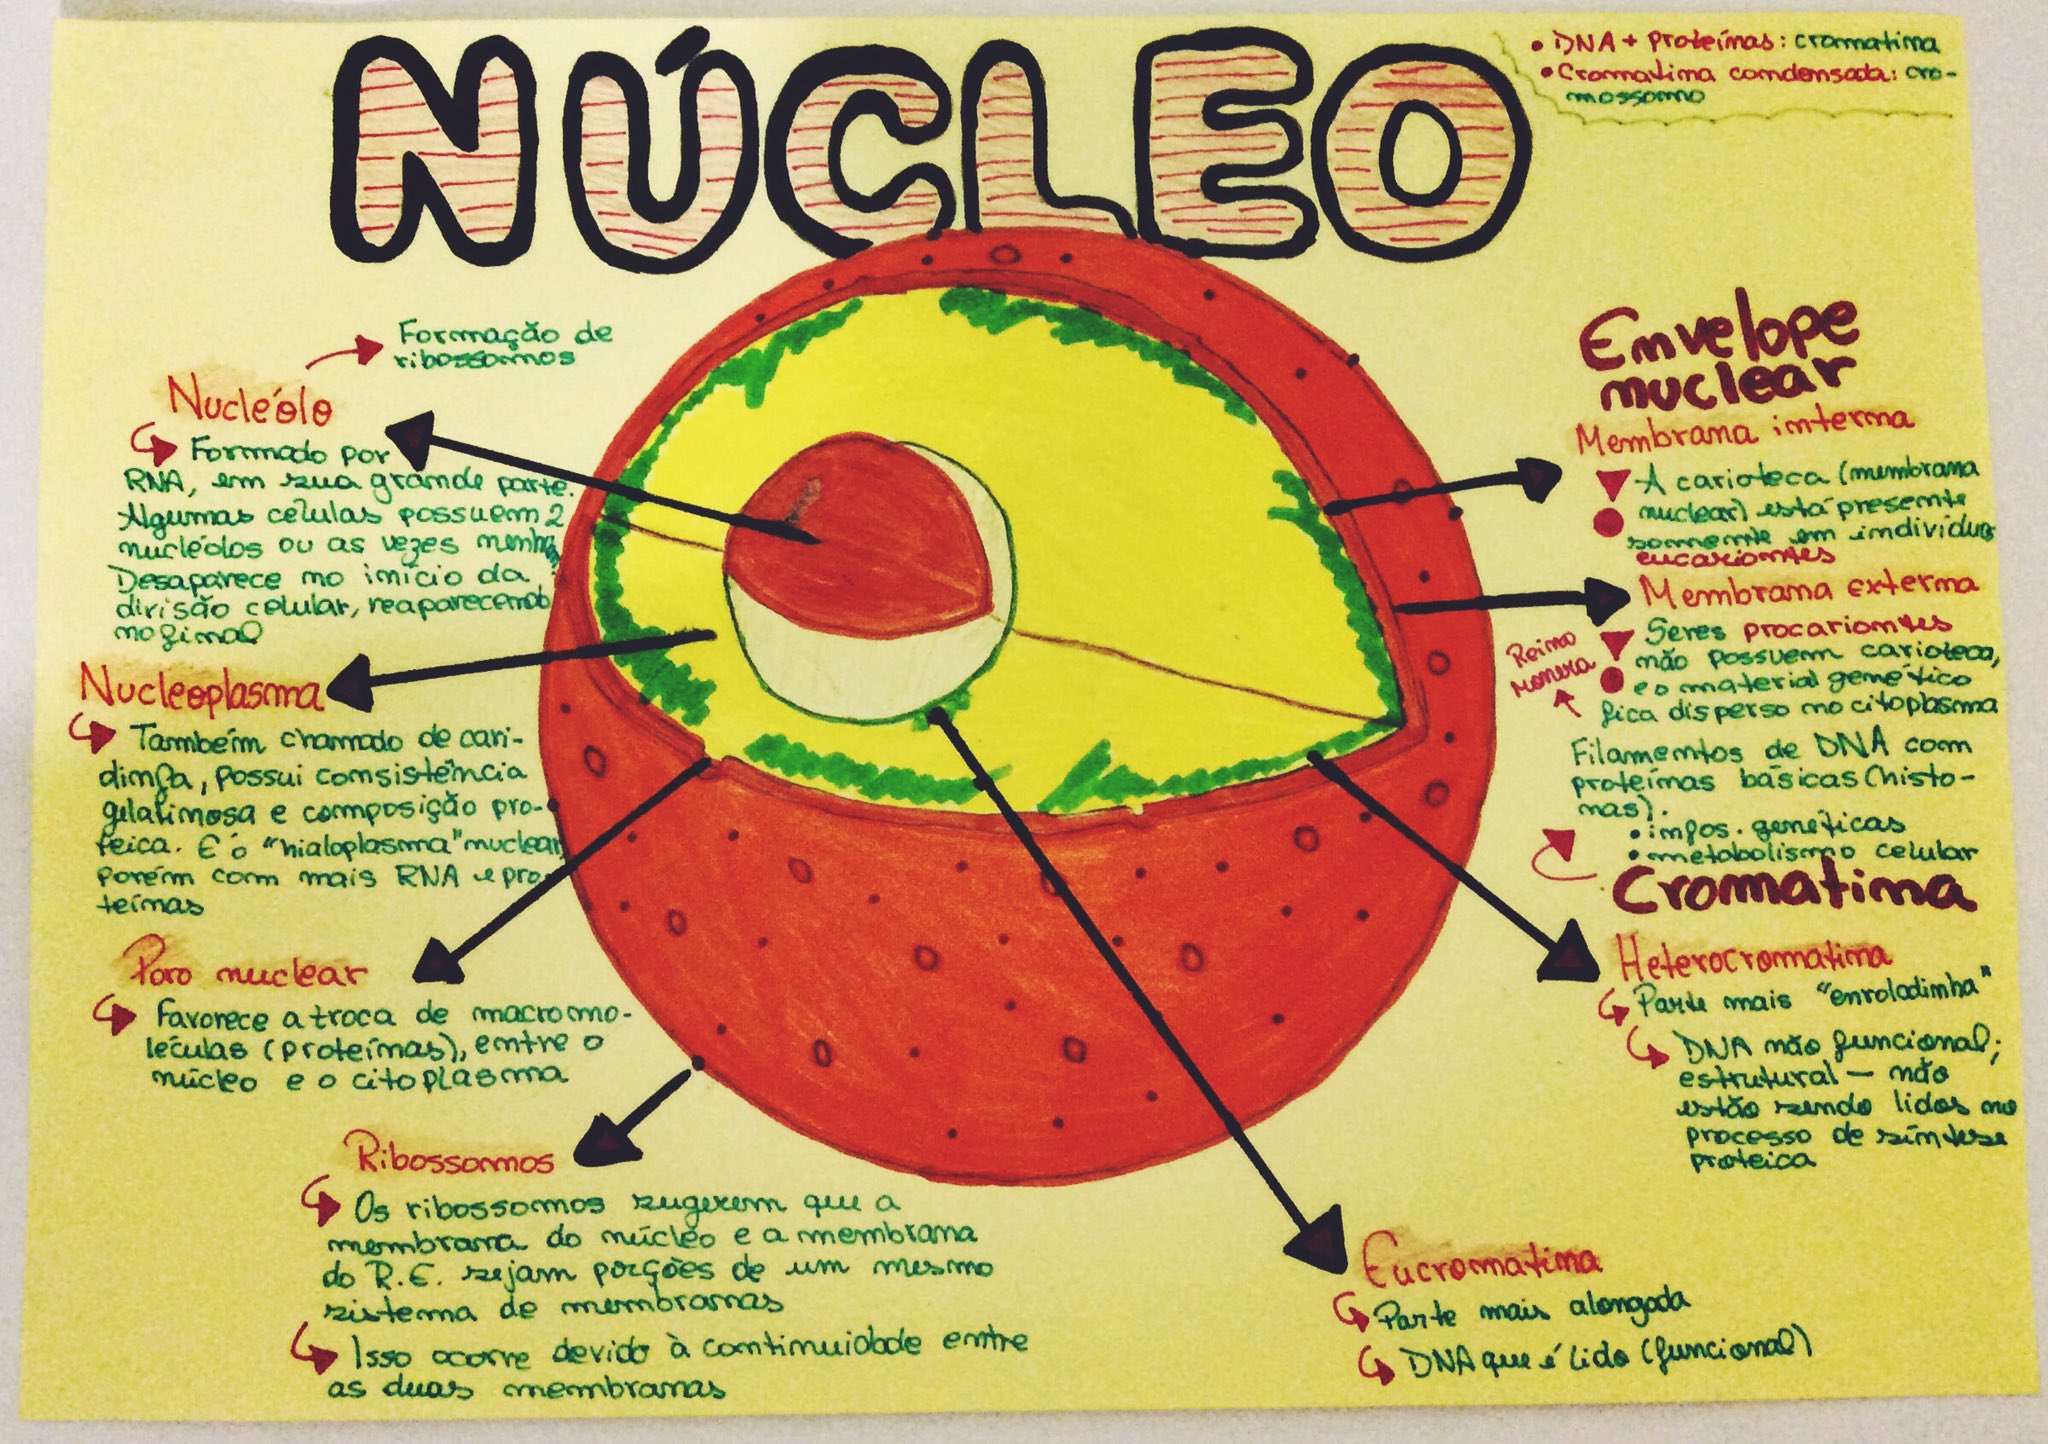 NÚCLEO
• DNA + proteínas: cromatina
• Cromatina condensada: cro-
mossomo
Formação de
ribossomos
Nucléolo
Formado por
RNA, em sua grande parte.
Algumas células possuem 2
nucléolos ou as vezes
Desaparece no início da
divisão celular, reaparecendo
no final
Nucleoplasma
Também chamado de cari-
linfa, possui consistência
gelatinosa e composição pro-
teica. É o "hialoplasma" nuclear,
porém com mais RNA e pro-
teínas
Poro nuclear
Favorece a troca de macromo-
léculas (proteínas), entre o
núcleo e o citoplasma
Ribossomos
Os ribossomos sugerem que a
membrana do núcleo e a membrana
do R.E. sejam porções de um mesmo
sistema de membranas
Isso ocorre devido à continuidade entre
as duas membranas
Envelope
nuclear
Membrana interna
A carioteca (membrana
nuclear) está presente
somente em indivíduos
eucariontes
Membrana externa
Seres procariontes
não possuem carioteca,
e o material genético
fica disperso no citoplasma
Reino
Monera
Filamentos de DNA com
proteínas básicas (histo-
nas).
• infos. genéticas
• metabolismo celular
Cromatina
Heterocromatina
Parte mais "enroladinha"
DNA não funcional;
estrutural — não
estão sendo lidos no
processo de síntese
proteica
Eucromatina
Parte mais alongada
DNA que é lido (funcional)